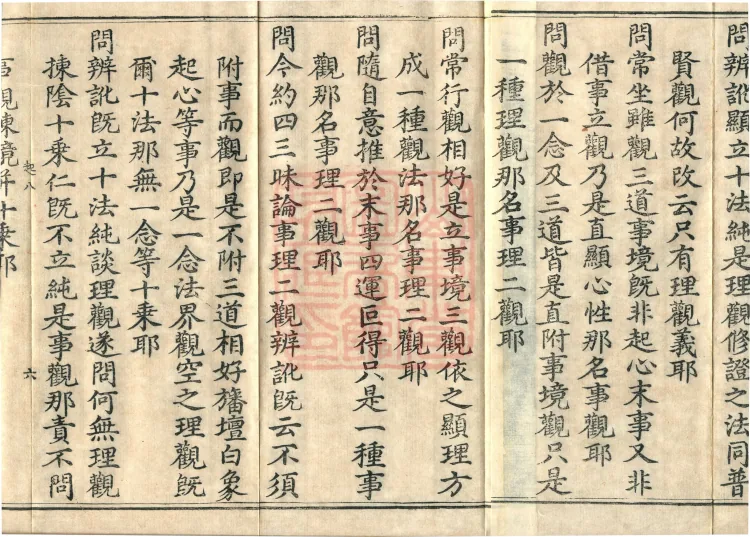 問辨訛顯立十法純是理觀修證之法同普
賢觀何故改云只有理觀義耶
問常坐雖觀三道事境旣非起心末事又非
借事立觀乃是直顯心性那名事觀耶
問觀於一念及三道皆是直附事境觀只是
一種理觀那名事理二觀耶
問常行觀相好是立事境三觀依之顯理方
成一種觀法那名事理二觀耶
問隨自意推於末事四運叵得只是一種事
觀那名事理二觀耶
問今約四三昧論事理二觀辨訛旣云不須
附事而觀即是不附三道相好旛壇白象
起心等事乃是一念法界觀空之理觀旣
爾十法那無一念等十乘耶
起八
六
問辨訛旣立十法純談理觀遂問何無理觀
揀陰十乘仁旣不立純是事觀那責不問
事觀揀境并十乘耶